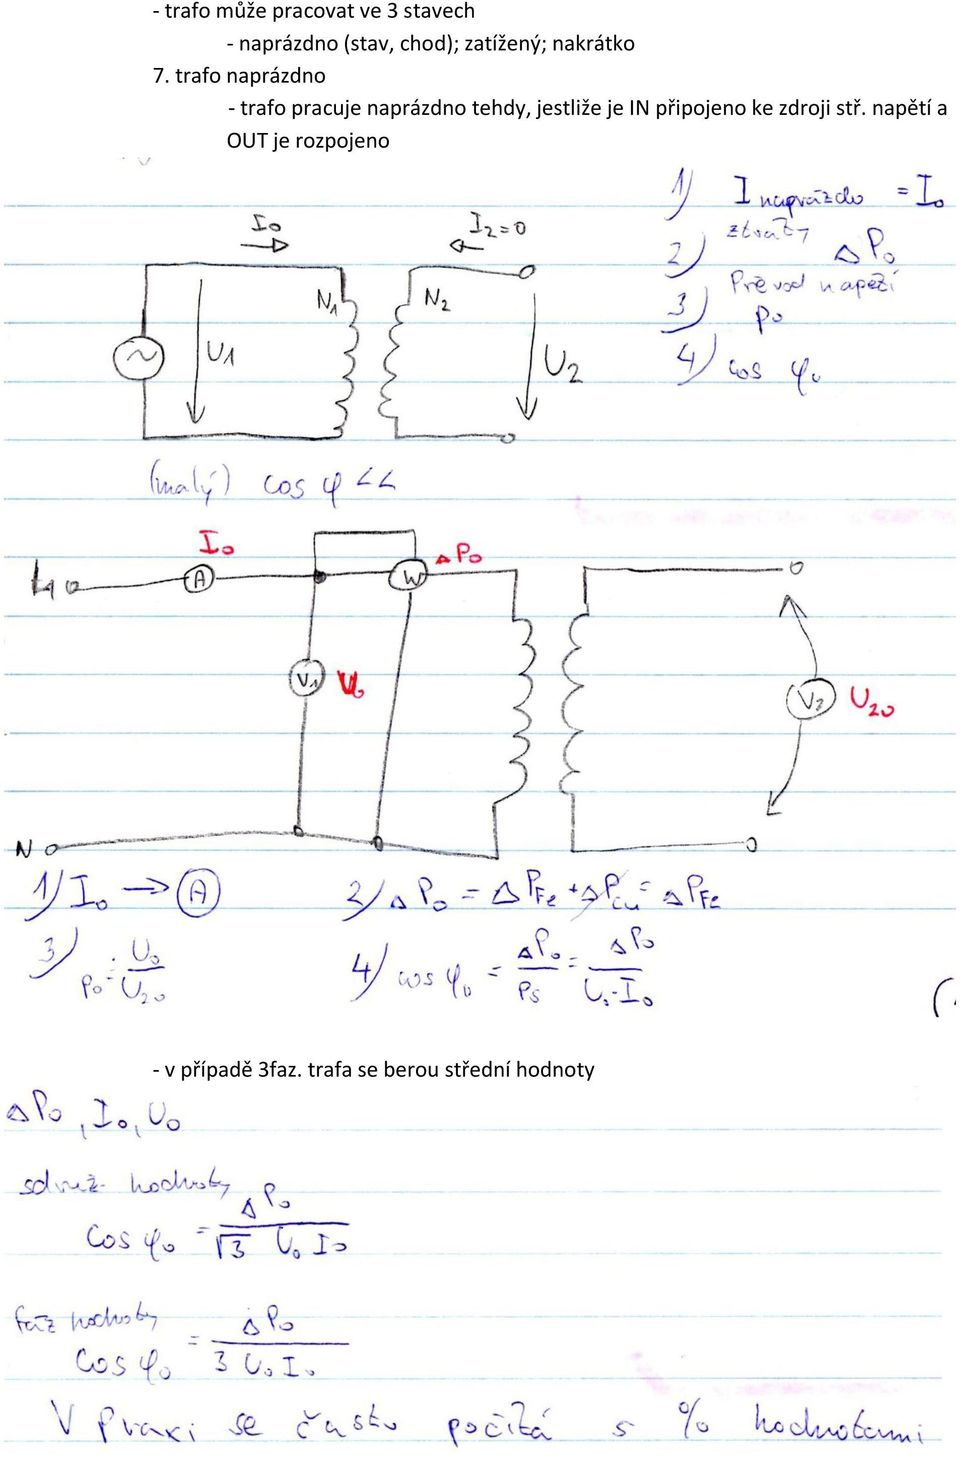 - trafo může pracovat ve 3 stavech
- naprázdno (stav, chod); zatížený; nakrátko
7. trafo naprázdno
- trafo pracuje naprázdno tehdy, jestliže je IN připojeno ke zdroji stř. napětí a
OUT je rozpojeno
1) I naprázdo = I₀
2) ztráty ΔP₀
3) Převod napězí p₀
4) cos φ₀
I₀ I₂=0
N₁ N₂
U1 U2
(malý) cos φ <<
I₀ ΔP₀
L1 A W
V1 U₀ V2 U₂₀
N
1) I₀ → A 2) ΔP₀ = ΔP_Fe + ΔP_Cu = ΔP_Fe
3) p₀ = U₀/U₂₀ 4) cos φ₀ = ΔP₀/Ps = ΔP₀/U₀·I₀
- v případě 3faz. trafa se berou střední hodnoty
ΔP₀, I₀, U₀
sdruž. hodnoty
cos φ₀ = ΔP₀/√3 U₀ I₀
fáz hodnoty
cos φ₀ = ΔP₀/3 U₀ I₀
V praxi se často počítá s % hodnotami